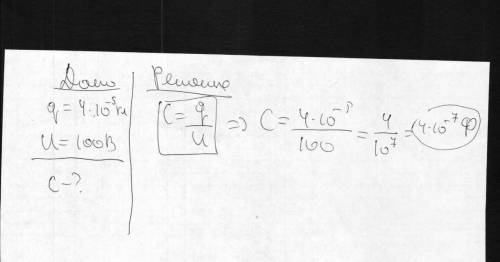 Дано
q = 4·10⁻⁵ Кл
U = 100В
C - ?
Решение
C = q/U => C = 4·10⁻⁵/100 = 4/10⁷ = 4·10⁻⁷ Ф